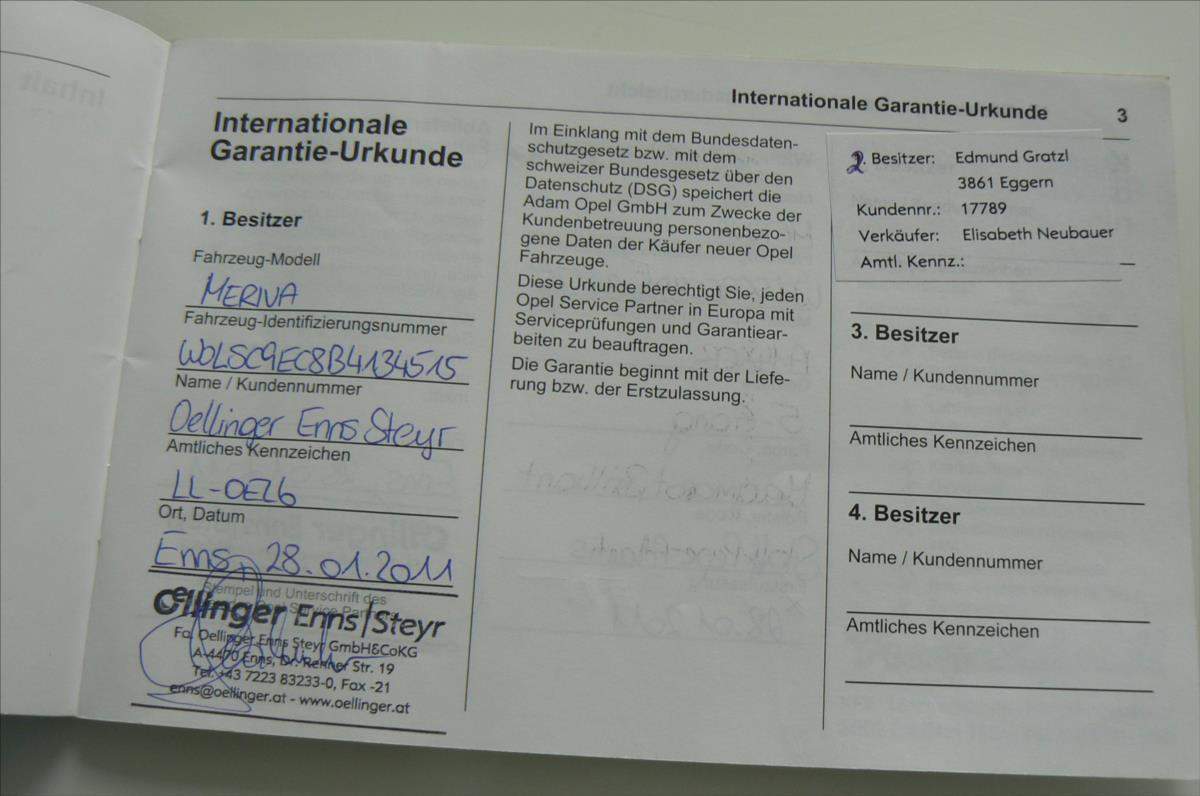 Internationale Garantie-Urkunde 3
Internationale
Garantie-Urkunde
1. Besitzer
Fahrzeug-Modell
MERIVA
Fahrzeug-Identifizierungsnummer
W0LSC9EC8B4134515
Name / Kundennummer
Oellinger Enns Steyr
Amtliches Kennzeichen
LL-OEZ6
Ort, Datum
Enns, 28.01.2011
Stempel und Unterschrift des
Opel Service Partners
Oellinger Enns/Steyr
Fa. Oellinger Enns Steyr GmbH&CoKG
A-4470 Enns, Dr. Renner Str. 19
Tel. +43 7223 83233-0, Fax -21
enns@oellinger.at - www.oellinger.at
Im Einklang mit dem Bundesdaten-
schutzgesetz bzw. mit dem
schweizer Bundesgesetz über den
Datenschutz (DSG) speichert die
Adam Opel GmbH zum Zwecke der
Kundenbetreuung personenbezo-
gene Daten der Käufer neuer Opel
Fahrzeuge.
Diese Urkunde berechtigt Sie, jeden
Opel Service Partner in Europa mit
Serviceprüfungen und Garantiear-
beiten zu beauftragen.
Die Garantie beginnt mit der Liefe-
rung bzw. der Erstzulassung.
2. Besitzer: Edmund Gratzl
3861 Eggern
Kundennr.: 17789
Verkäufer: Elisabeth Neubauer
Amtl. Kennz.:
3. Besitzer
Name / Kundennummer
Amtliches Kennzeichen
4. Besitzer
Name / Kundennummer
Amtliches Kennzeichen